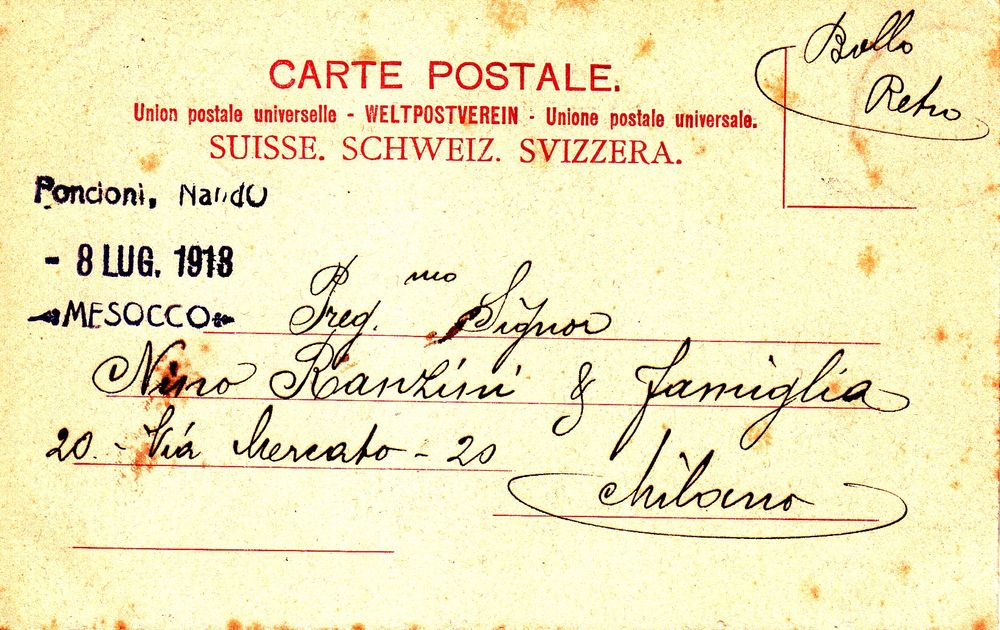 Bollo
Retro
CARTE POSTALE.
Union postale universelle - WELTPOSTVEREIN - Unione postale universale.
SUISSE. SCHWEIZ. SVIZZERA.
Poncioni, Nando
- 8 LUG. 1918
MESOCCO
Preg.mo Signor
Nino Ranzini & famiglia
20 - Via Mercato - 20
Milano